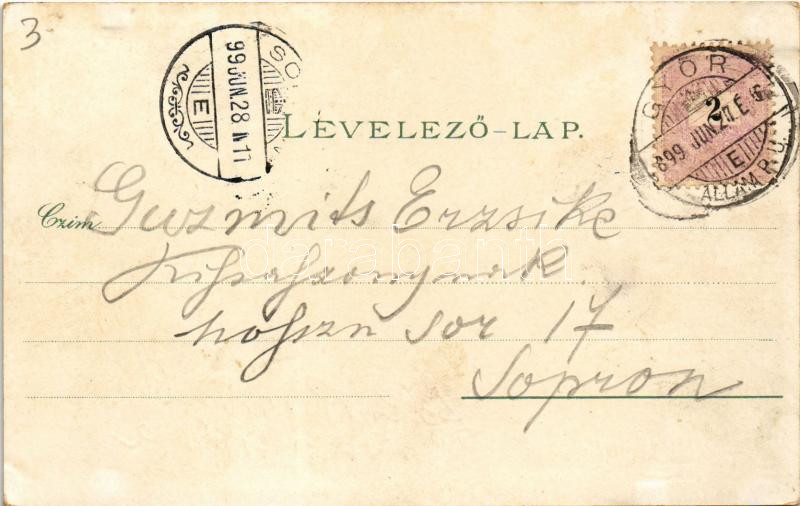 3
SO
99 JUN. 28 N 11
E
GYŐR
2
899 JUN. E 6
E
ÁLLAM P.U.
LEVELEZŐ-LAP.
Czim Guzmits Erzsike
Kisasszonynak
hosszu sor 17
Sopron
darabanth